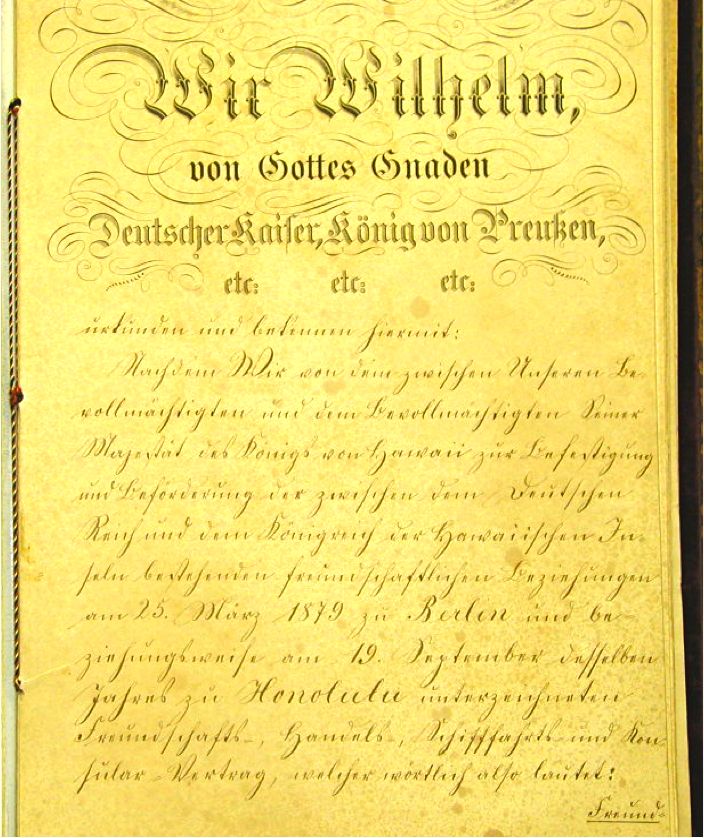 Wir Wilhelm,
von Gottes Gnaden
Deutscher Kaiser, König von Preußen,
etc: etc: etc:
urkunden und bekennen hiermit:
Nachdem Wir von dem zwischen Unseren Be-
vollmächtigten und dem Bevollmächtigten Seiner
Majestät des Königs von Hawaii zur Befestigung
und Beförderung der zwischen dem Deutschen
Reich und dem Königreich der Hawaiischen In-
seln bestehenden freundschaftlichen Beziehungen
am 25. März 1879 zu Berlin und be-
ziehungsweise am 19. September desselben
Jahres zu Honolulu unterzeichneten
Freundschafts-, Handels-, Schifffahrts- und Kon-
sular-Vertrag, welcher wörtlich also lautet:
Freund-